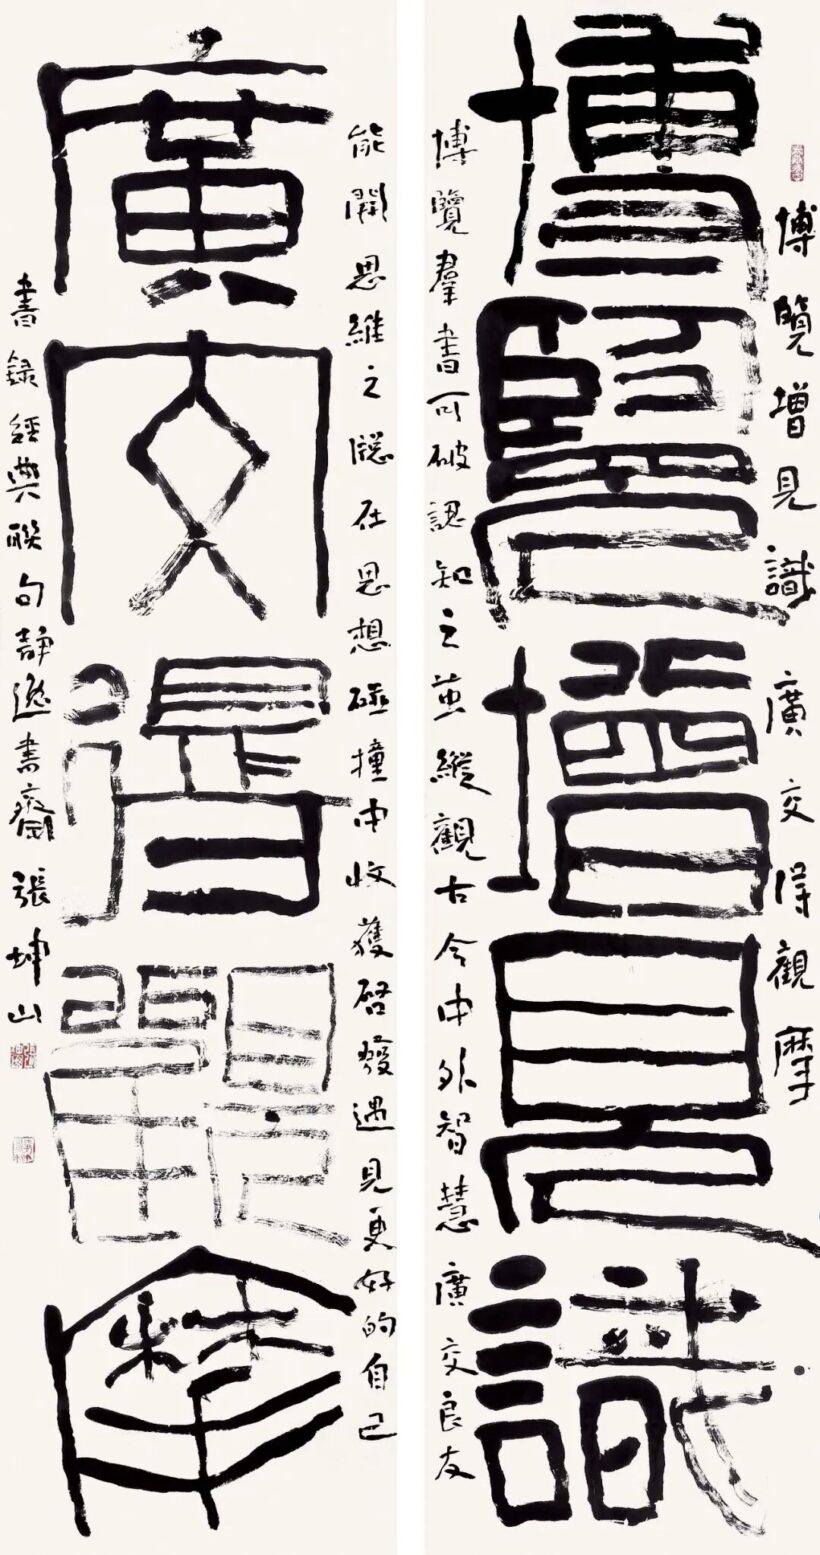 博覽增見識 廣交得觀摩
博覽增見識
博覽羣書可破認知之茧縱觀古今中外智慧廣交良友
能開思維之牕在思想碰撞中收獲啓發遇見更好的自己
廣交得觀摩
書録經典聯句静逸書齋張坤山